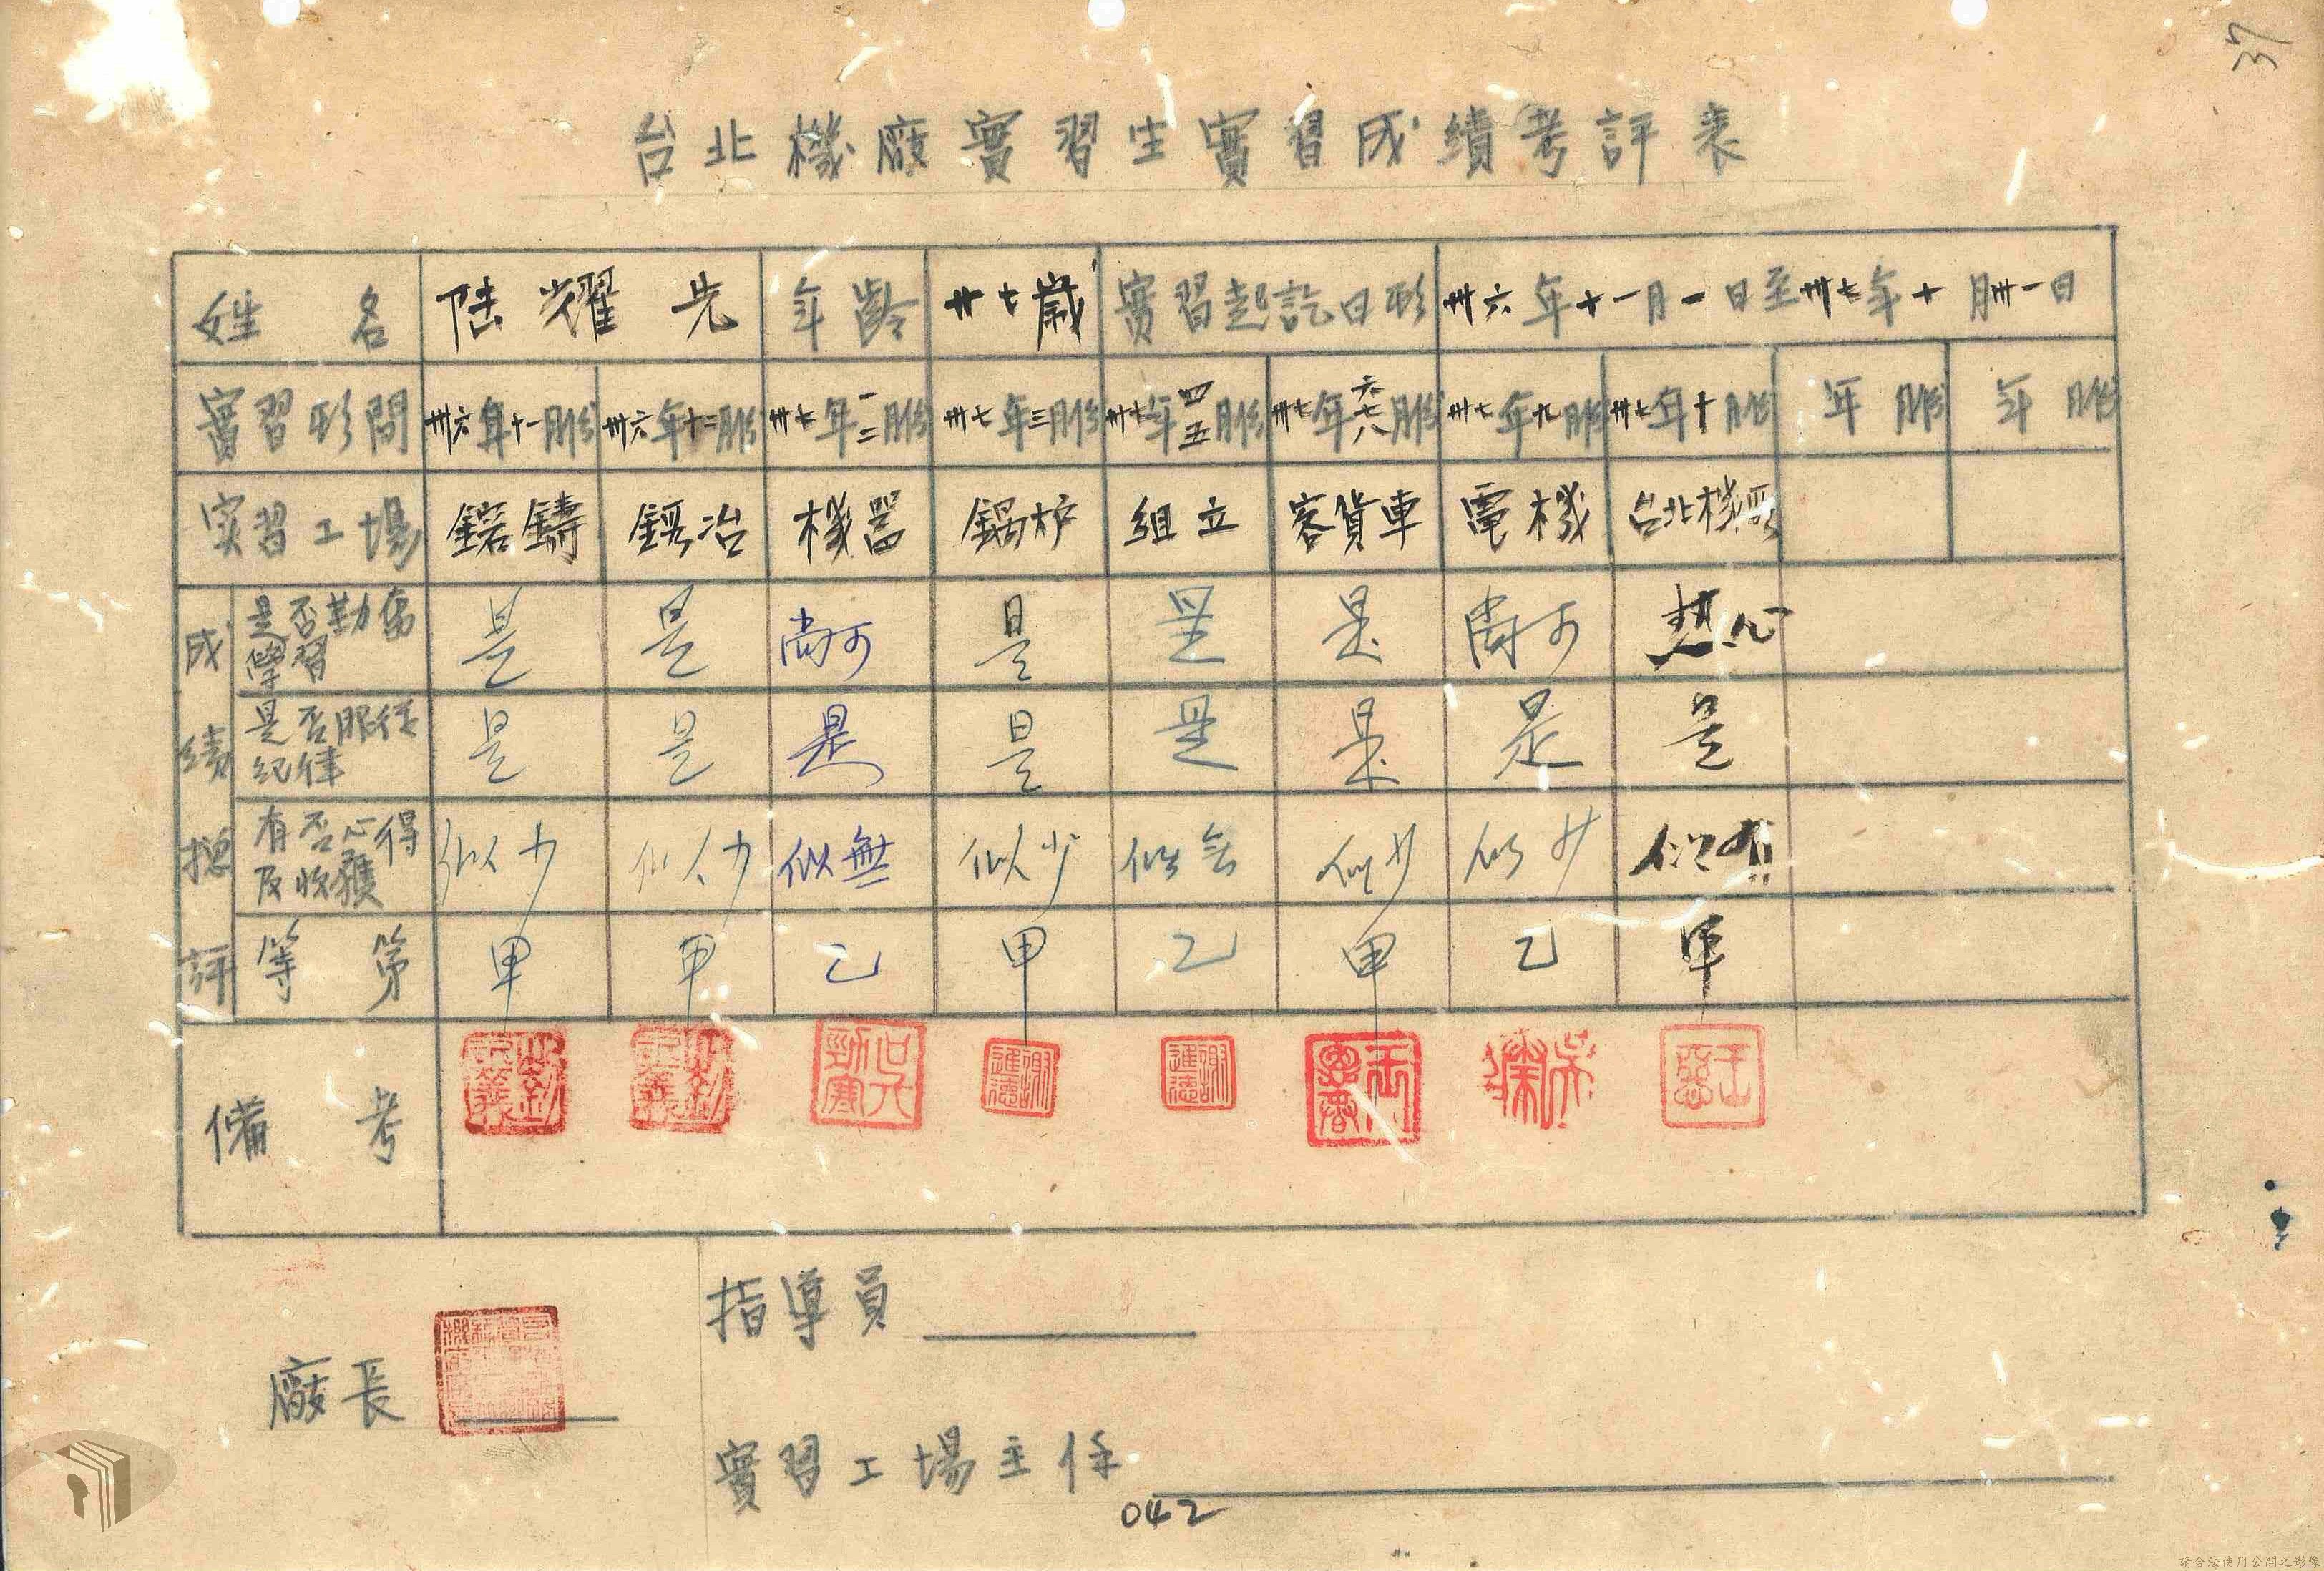 37
台北機廠實習生實習成績考評表
姓名 陆耀先 年齡 廿七歲 實習起訖日形 卅六年十一月一日至卅七年十月卅一日
實習形間 卅六年十一月份 卅六年十二月份 卅七年一二月份 卅七年三月份 卅七年四五月份 卅七年六七八月份 卅七年九月份 卅七年十月份 年 月份 年 月份
实習工場 鑄 冶 機器 鍋炉 組立 客貨車 電機 台北機廠
成績總評
是否勤奮學習 是 是 尚可 是 是 是 尚可 熱心
是否服從紀律 是 是 是 是 是 是 是 是
有否心得及收獲 似少 似少 似無 似少 似 似少 似少
等第 甲 甲 乙 甲 乙 甲 乙 甲
備考 謝進德 謝進德
指導員
廠長
實習工場主任
042
請合法使用公開之影像